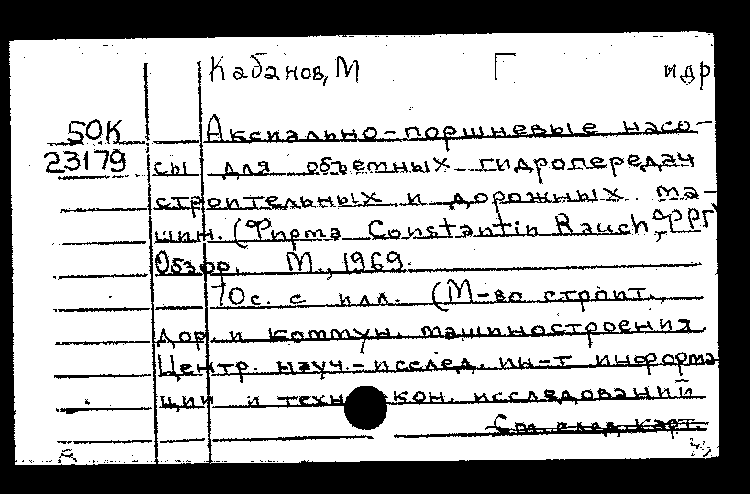 Кабанов, М Г идр
50К Аксиально-поршневые насо-
23179 сы для объемных гидропередач
строительных и дорожных ма-
шин. (Фирма Constantin Rauch, ФРГ)
Обзор. М., 1969.
70с. с илл. (М-во строит.,
дор. и коммун. машиностроения
Центр. науч.-исслед. ин-т информа
ции и техн кон. исследований
См. след. карт.